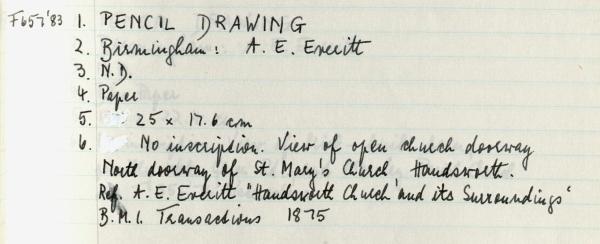 F657'83 1. PENCIL DRAWING
2. Birmingham: A. E. Everitt
3. N.D.
4. Paper
5. 25 x 17.6 cm
6. No inscription. View of open church doorway
North doorway of St. Mary's Church Handsworth.
Ref. A. E. Everitt "Handsworth Church and its Surroundings"
B.M.I. Transactions 1875